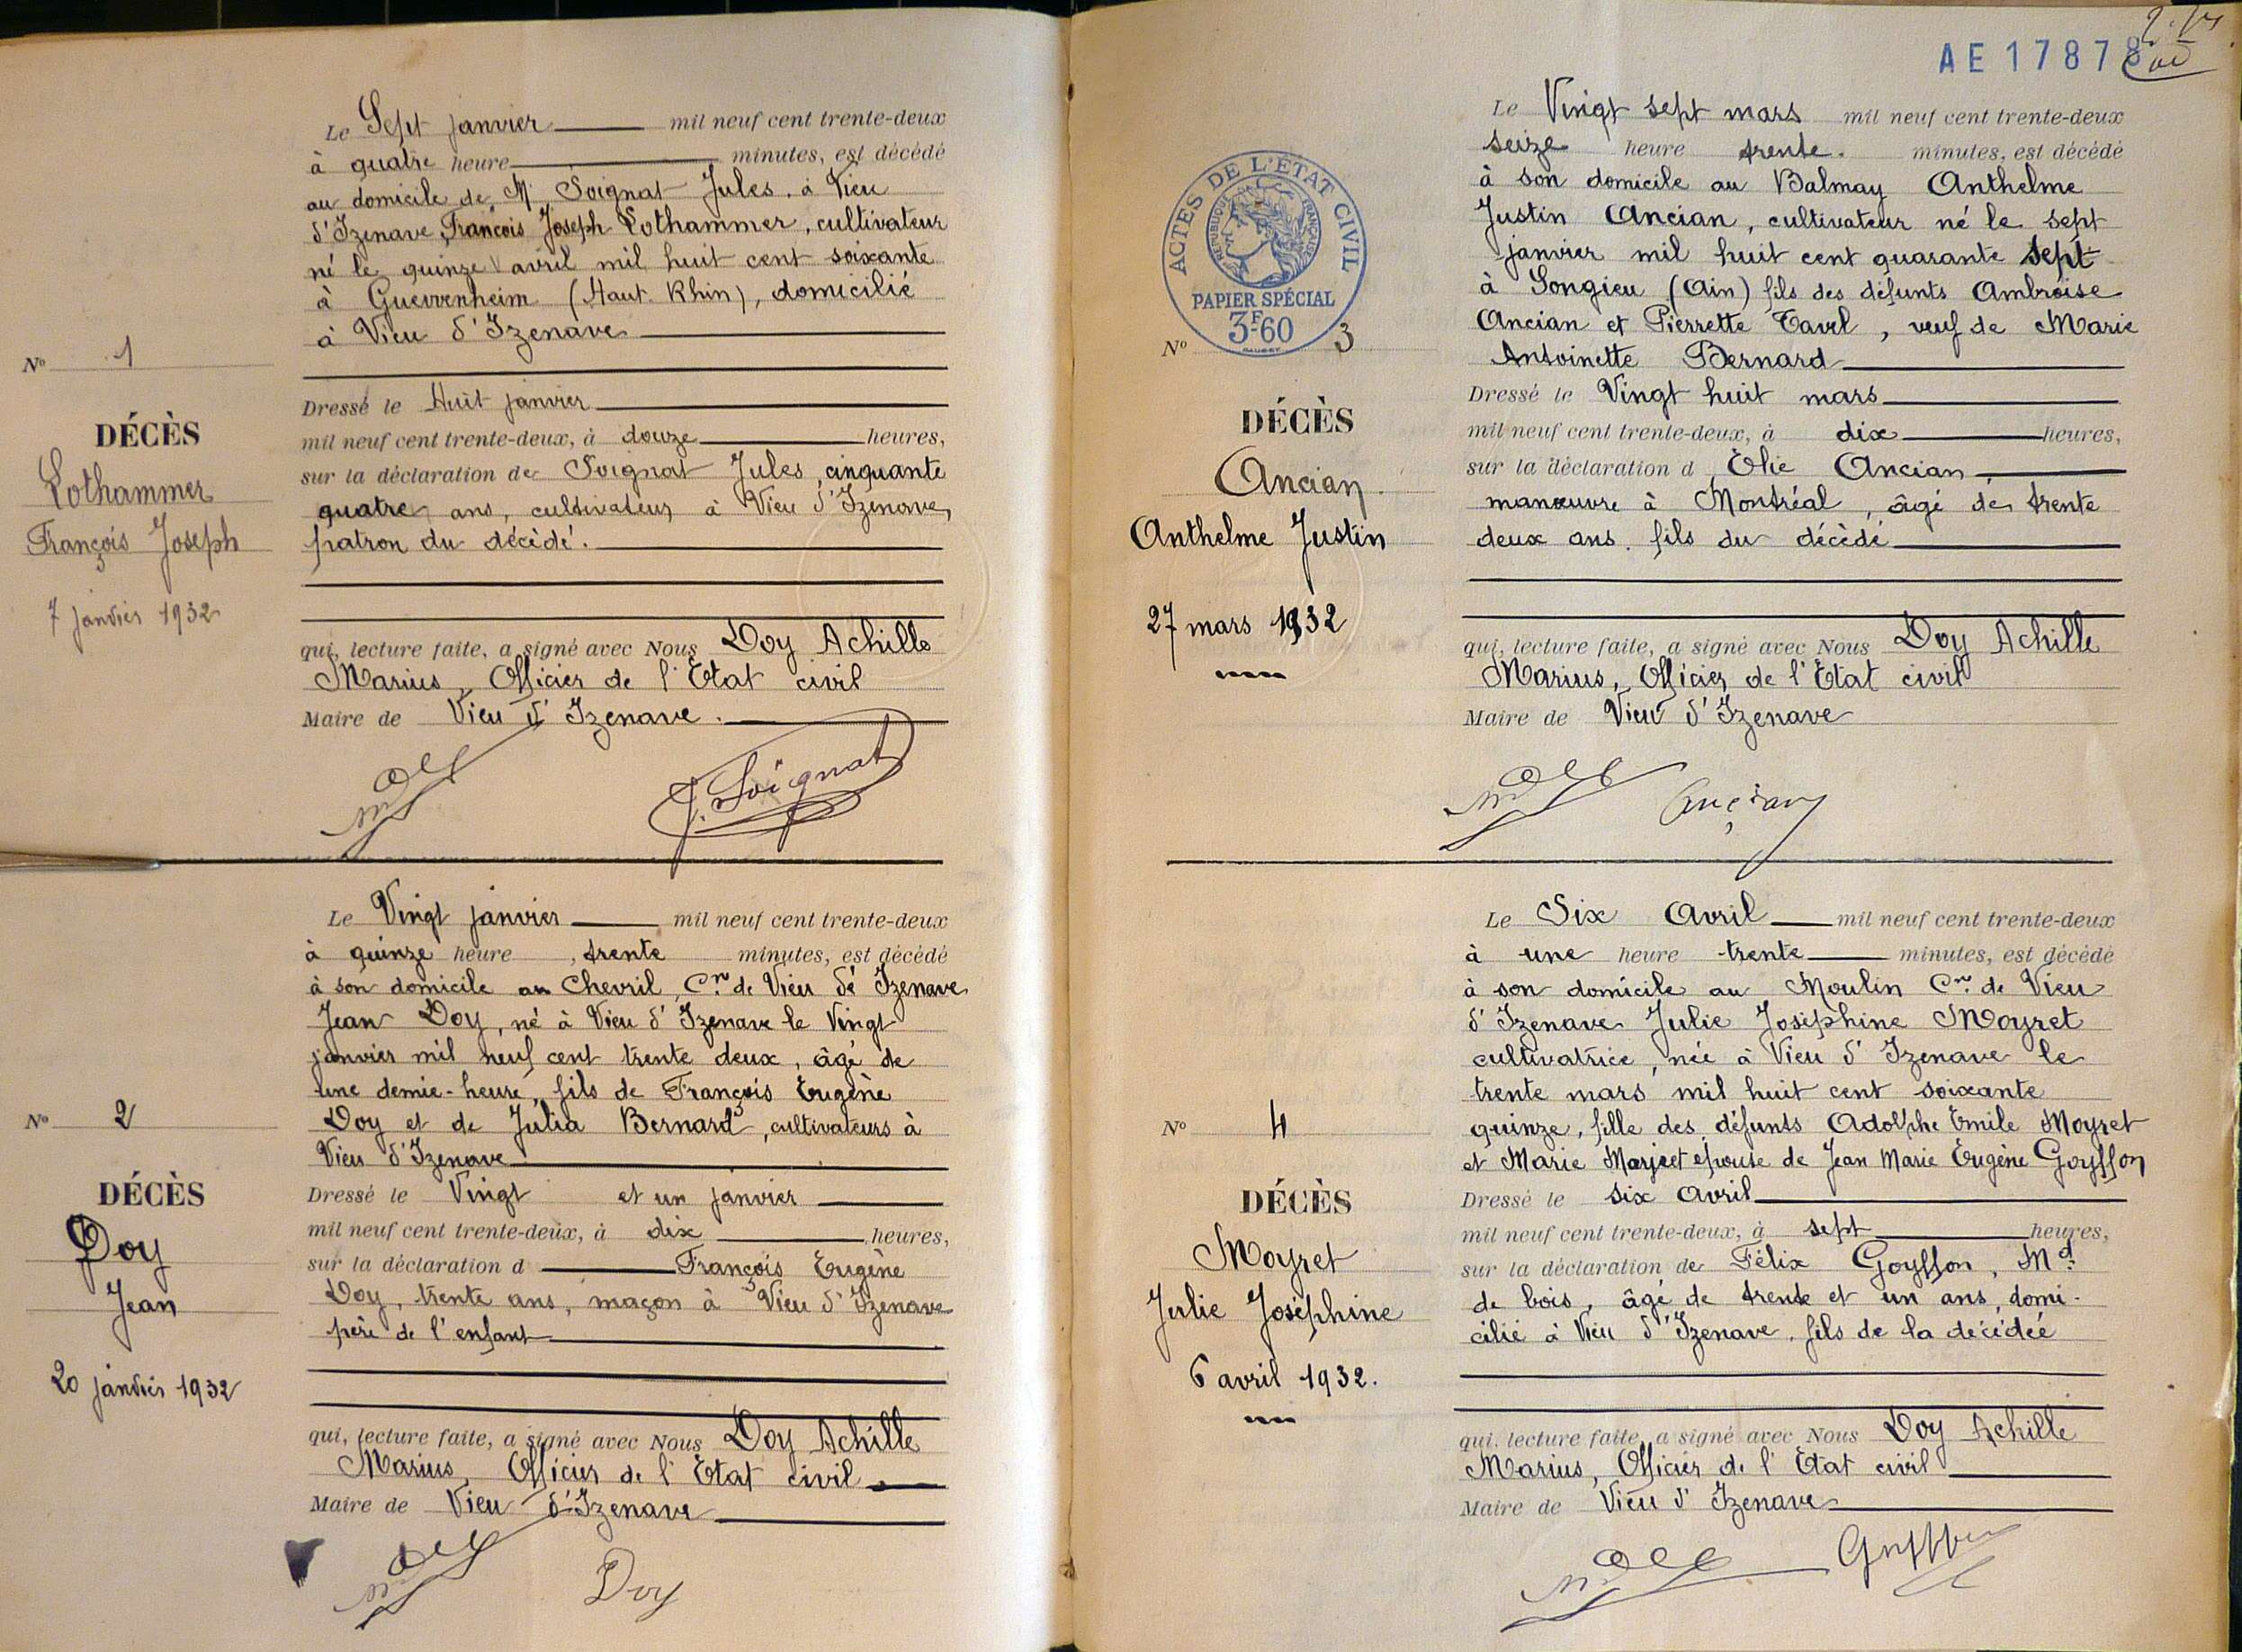 Le Sept janvier mil neuf cent trente-deux
à quatre heure minutes, est décédé
au domicile de M. Soignat Jules. à Vieu
d'Izenave, François Joseph Lothammer, cultivateur
né le quinze avril mil huit cent soixante
à Guewenheim (Haut. Rhin), domicilié
à Vieu d'Izenave
N° 1
DÉCÈS
Lothammer
François Joseph
7 janvier 1932
Dressé le Huit janvier
mil neuf cent trente-deux, à douze heures,
sur la déclaration de Soignat Jules, cinquante
quatre ans, cultivateur à Vieu d'Izenave,
patron du décèdé.
qui, lecture faite, a signé avec Nous Doy Achille
Marius, Officier de l'Etat civil
Maire de Vieu d'Izenave.
J. Soignat
Le Vingt janvier mil neuf cent trente-deux
à quinze heure, trente minutes, est décédé
à son domicile au Chevril, Cne de Vieu d'Izenave
Jean Doy, né à Vieu d'Izenave le Vingt
janvier mil neuf cent trente deux, âgé de
une demie-heure, fils de François Eugène
Doy et de Julia Bernard, cultivateurs à
Vieu d'Izenave
N° 2
DÉCÈS
Doy
Jean
20 janvier 1932
Dressé le Vingt et un janvier
mil neuf cent trente-deux, à dix heures,
sur la déclaration d François Eugène
Doy, trente ans, maçon à Vieu d'Izenave
père de l'enfant
qui, lecture faite, a signé avec Nous Doy Achille
Marius, Officier de l'Etat civil
Maire de Vieu d'Izenave
Doy
AE 17878
Le Vingt sept mars mil neuf cent trente-deux
seize heure trente. minutes, est décédé
à son domicile au Balmay Anthelme
Justin Ancian, cultivateur né le sept
janvier mil huit cent quarante sept
à Songieu (Ain) fils des défunts Ambroise
Ancian et Pierrette Tavel, veuf de Marie
Antoinette Bernard
ACTES DE L'ÉTAT CIVIL
RÉPUBLIQUE FRANÇAISE
PAPIER SPÉCIAL
3F60
N° 3
DÉCÈS
Ancian
Anthelme Justin
27 mars 1932
Dressé le Vingt huit mars
mil neuf cent trente-deux, à dix heures,
sur la déclaration d Elie Ancian
manœuvre à Montréal, âgé de trente
deux ans. fils du décèdé
qui, lecture faite, a signé avec Nous Doy Achille
Marius, Officier de l'Etat civil
Maire de Vieu d'Izenave
Ancian
Le Six Avril mil neuf cent trente-deux
à une heure trente minutes, est décédé
à son domicile au Moulin Cne de Vieu
d'Izenave Julie Joséphine Moyret
cultivatrice, née à Vieu d'Izenave le
trente mars mil huit cent soixante
quinze, fille des défunts Adolphe Emile Moyret
et Marie Marjeet épouse de Jean Marie Eugène Goyffon
N° 4
DÉCÈS
Moyret
Julie Joséphine
6 avril 1932.
Dressé le six Avril
mil neuf cent trente-deux, à sept heures,
sur la déclaration de Félix Goyffon, Md
de bois, âgé de trente et un ans, domi-
cilié à Vieu d'Izenave, fils de la décédée
qui, lecture faite, a signé avec Nous Doy Achille
Marius, Officier de l'Etat civil
Maire de Vieu d'Izenave
Goyffon